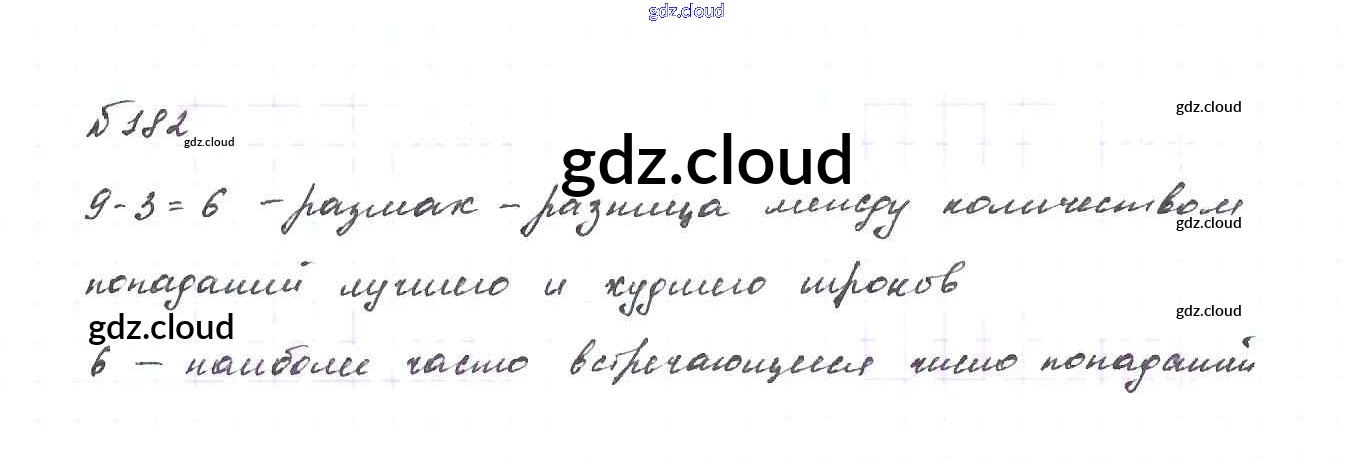 gdz.cloud
gdz.cloud
№182
gdz.cloud
gdz.cloud
9-3=6 - размах - разница между количеством
gdz.cloud
попаданий лучшего и худшего игроков
gdz.cloud
gdz.cloud
6 - наиболее часто встречающееся число попаданий